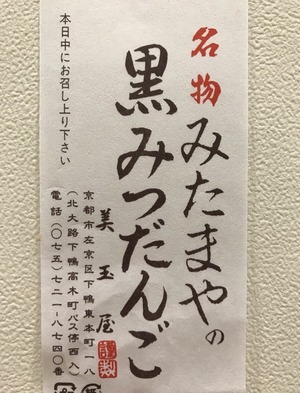 名物
みたまやの
黒みつだんご
美玉屋
謹製
京都市左京区下鴨東本町一八
(北大路下鴨高木町バス停西入)
電話(〇七五)七二一-八七四〇番
本日中にお召し上り下さい